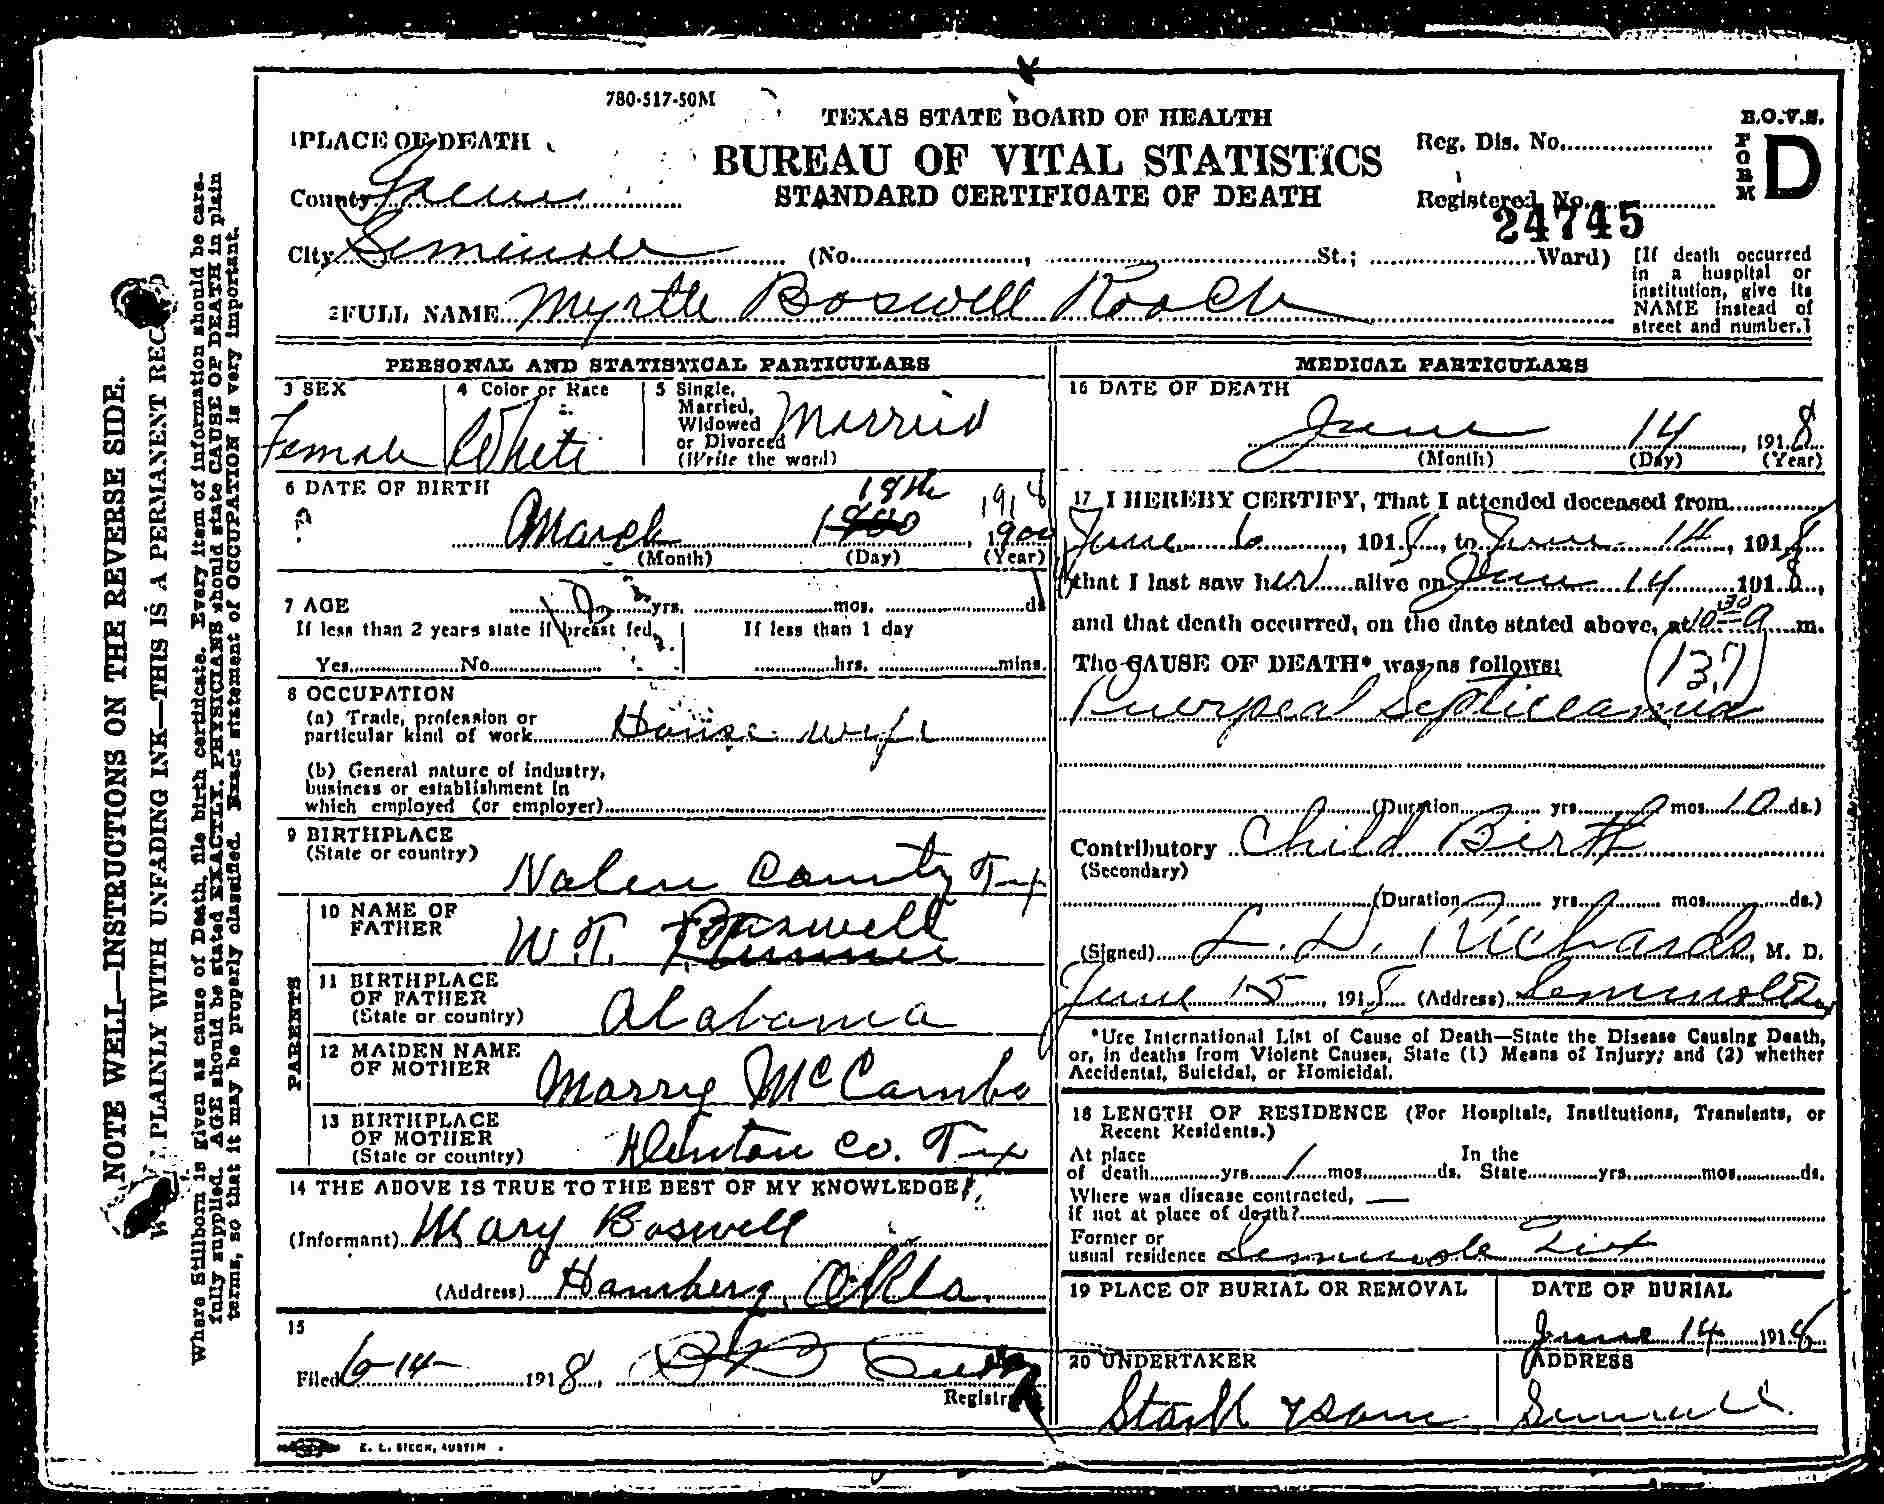 780-517-50M
TEXAS STATE BOARD OF HEALTH
BUREAU OF VITAL STATISTICS
STANDARD CERTIFICATE OF DEATH
B.O.V.S.
FORM D
Reg. Dis. No.
Registered No.
24745
1 PLACE OF DEATH
County
City Seminole (No. , St.; Ward)
[If death occurred in a hospital or institution, give its NAME instead of street and number.]
2 FULL NAME Myrtle Boswell Roach
PERSONAL AND STATISTICAL PARTICULARS
3 SEX
Female
4 Color or Race
White
5 Single, Married, Widowed or Divorced (Write the word)
Married
6 DATE OF BIRTH
March 18th 1918
1900
(Month) (Day) (Year)
7 AGE
yrs. mos. ds
If less than 2 years state if breast fed,
Yes No
If less than 1 day
hrs. mins.
8 OCCUPATION
(a) Trade, profession or
particular kind of work House wife
(b) General nature of industry,
business or establishment in
which employed (or employer)
9 BIRTHPLACE
(State or country)
Nolen County Tex
PARENTS
10 NAME OF FATHER
W. T. Boswell
11 BIRTHPLACE OF FATHER
(State or country)
Alabama
12 MAIDEN NAME OF MOTHER
Marry McCambs
13 BIRTHPLACE OF MOTHER
(State or country)
Denton Co. Tex
14 THE ABOVE IS TRUE TO THE BEST OF MY KNOWLEDGE
(Informant) Mary Boswell
(Address) Hamberg, Okla.
15
Filed 6-14- 1918,
Registrar
MEDICAL PARTICULARS
16 DATE OF DEATH
June 14, 1918
(Month) (Day) (Year)
17 I HEREBY CERTIFY, That I attended deceased from
June 6, 1918, to June 14, 1918
that I last saw her alive on June 14 1918,
and that death occurred, on the date stated above, at 10 30 a m.
The CAUSE OF DEATH* was as follows:
(137)
Puerpeal Septiceamia
(Duration yrs. mos. 10 ds.)
Contributory Child Birth
(Secondary)
(Duration yrs. mos. ds.)
(Signed) L. D. Richards, M. D.
June 15, 1918 (Address) Seminole Tx
*Use International List of Cause of Death—State the Disease Causing Death,
or, in deaths from Violent Causes, State (1) Means of Injury; and (2) whether
Accidental, Suicidal, or Homicidal.
18 LENGTH OF RESIDENCE (For Hospitals, Institutions, Transients, or
Recent Residents.)
At place
of death yrs. 1 mos. ds.
In the
State yrs. mos. ds.
Where was disease contracted, —
if not at place of death?
Former or
usual residence Seminole Tex
19 PLACE OF BURIAL OR REMOVAL
DATE OF BURIAL
June 14 1918
20 UNDERTAKER
Stark & Sons
ADDRESS
E. L. STECK, AUSTIN
NOTE WELL—INSTRUCTIONS ON THE REVERSE SIDE.
PLAINLY WITH UNFADING INK—THIS IS A PERMANENT REC
Where Stillborn is given as cause of Death, file birth certificate. Every item of information should be care-
fully supplied. AGE should be stated EXACTLY. PHYSICIANS should state CAUSE OF DEATH in plain
terms, so that it may be properly classified. Exact statement of OCCUPATION is very important.